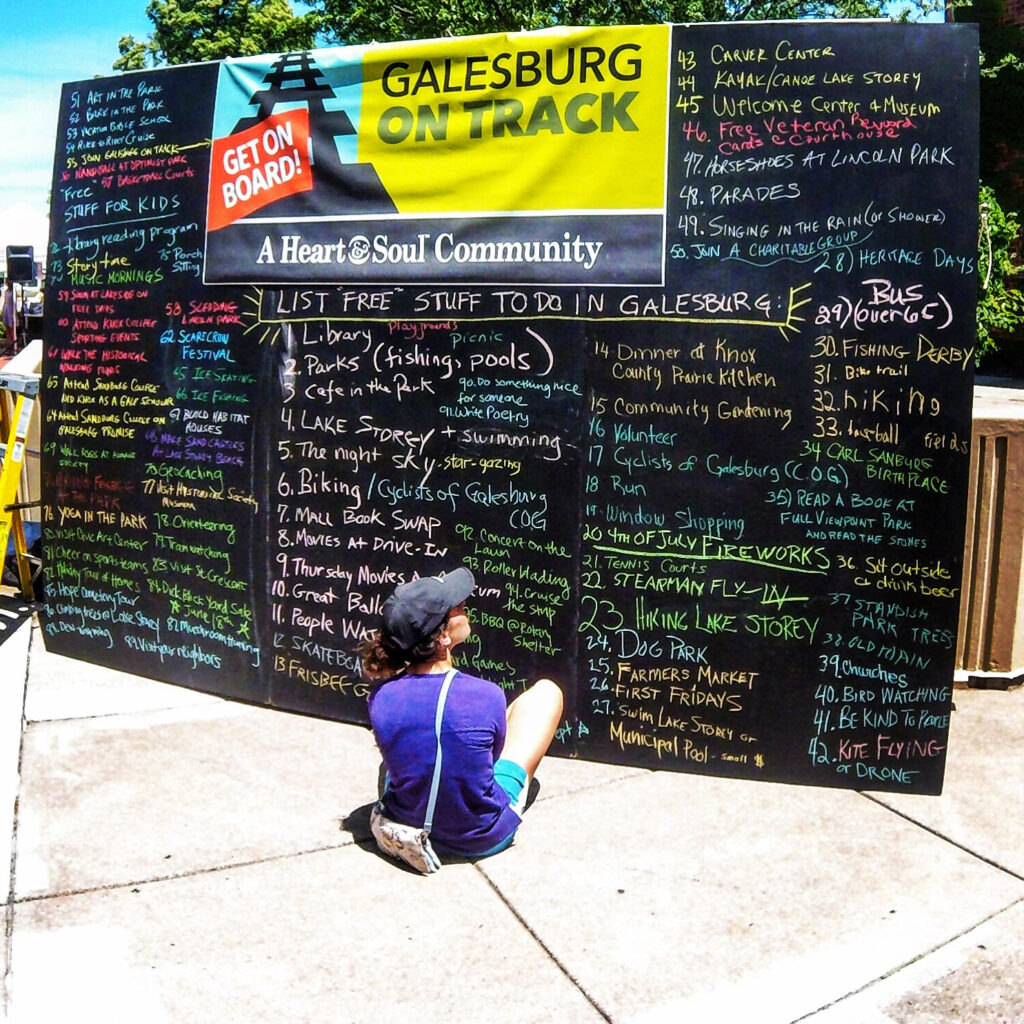 GALESBURG
ON TRACK
GET ON
BOARD!
A Heart & Soul Community
LIST "FREE" STUFF TO DO IN GALESBURG:
51 ART IN THE PARK
52 BARK IN THE PARK
53 VACATION BIBLE SCHOOL
54 RIVER TO RIVER CRUISE
55 JOIN GALESBURG ON TRACK
56 HANDBALL AT OPTIMIST PARK
"Free" 57 BASKETBALL COURTS
STUFF FOR KIDS
72 Library reading program
73 Story time
75 Porch
Sitting
MUSIC MORNINGS
59 SWIM AT LAKESIDE ON
FREE DAYS
60 ATTEND KNOX COLLEGE
SPORTING EVENTS
61 WALK THE HISTORICAL
WALKING
58. SLEDDING
LINCOLN PARK
62 SCARECROW
FESTIVAL
65 Attend SANDBURG COLLEGE
AND KNOX AS A GALE SCHOLAR
64 Attend SANDBURG COLLEGE ON
GALESBURG PROMISE
45 ICE SKATING
66 ICE FISHING
67 BUILD HABITAT
HOUSES
68 MAKE SANDCASTLES
AT LAKE STOREY BEACH
69 WALK DOGS AT HUMANE
SOCIETY
70 Geocaching
77 Visit Historical Society
Museum
76 YOGA IN THE PARK
78 Orienteering
80 Visit Civic Art Center
79. Train watching
81 Cheer on sports teams
83 Visit St.
82 Holiday Tour of Homes
84 Dick Black Yard Sale
June 18th
85 Hope Cemetery Tour
87 Mushroom Hunting
89 Visit your neighbors
1 Library
playgrounds
picnic
2. Parks (fishing, pools)
3 Cafe in the Park
90. Do something nice
for someone
91. Write Poetry
4. LAKE STOREY + swimming
5. The night sky - star-gazing
6. Biking / Cyclists of Galesburg
COG
7. MALL BOOK SWAP
8. MOVIES AT DRIVE-IN
9. Thursday Movies
10. Great
11. PEOPLE
12 SKATEBOA
13 FRISBEE G
92. Concert on the
Lawn
93 Roller blading
94. cruise
the strip
BBQ @
Shelter
Games
14 Dinner at Knox
County Prairie Kitchen
15 Community Gardening
16 Volunteer
17 Cyclists of Galesburg (C.O.G)
18 Run
19. Window Shopping
20 4TH OF JULY FIREWORKS
21. TENNIS COURTS
22. STEARMAN FLY-IN
23 HIKING LAKE STOREY
24. DOG PARK
25. FARMERS MARKET
26. FIRST FRIDAYS
27. SWIM LAKE STOREY or
Municipal Pool - small $
43 CARVER CENTER
44 KAYAK/CANOE LAKE STOREY
45 Welcome Center & Museum
46. Free Veteran Reward
Cards @ Courthouse
47. HORSESHOES AT LINCOLN PARK
48. PARADES
49. SINGING IN THE RAIN (or SHOWER)
50. JOIN A CHARITABLE GROUP
28) HERITAGE DAYS
29) BUS
(over 65)
30. FISHING DERBY
31. Bike trail
32. hiking
33. baseball fields
34 CARL SANBURG
BIRTHPLACE
35) READ A BOOK AT
FULL VIEWPOINT PARK
AND READ THE STONES
36. Sit outside
& drink beer
37 STANDISH
PARK TREES
38. OLD MAIN
39. Churches
40. BIRD WATCHING
41. BE KIND TO PEOPLE
42. KITE FLYING
or DRONE